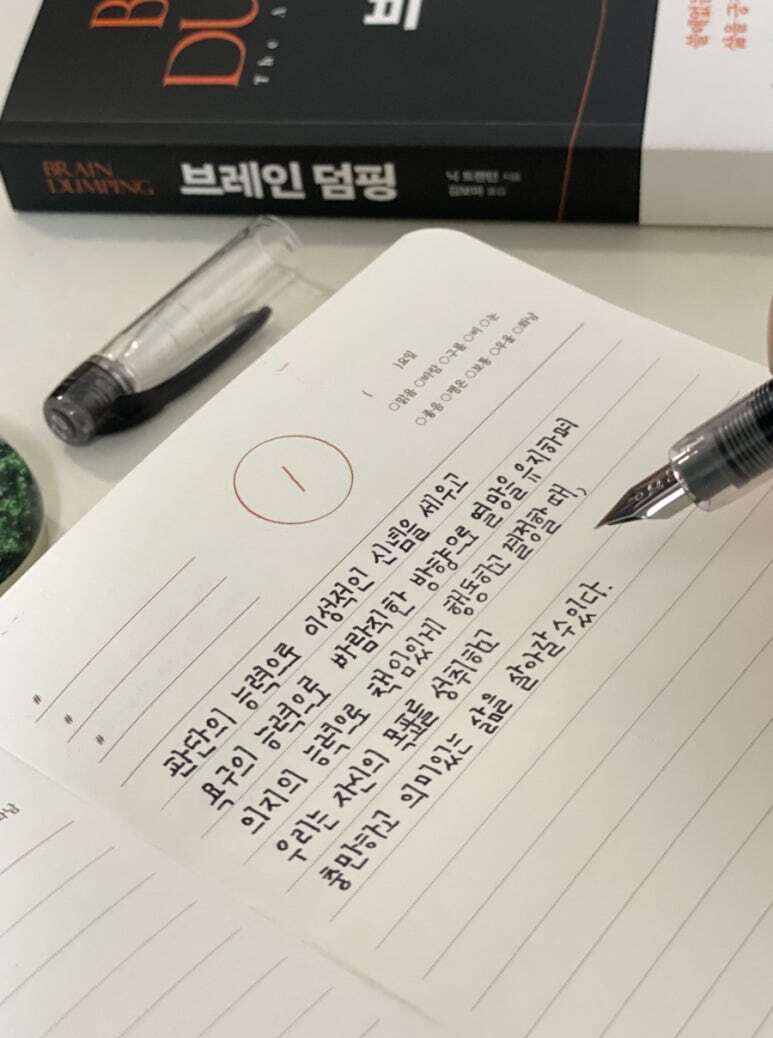 DU
The A
BRAIN
DUMPING
브레인 덤핑
닉 트렌턴 지음
김보미 옮김
( )요일
○맑음 ○바람 ○구름 ○비 ○눈
○좋음 ○평온 ○보통 ○우울 ○화남
1
#
#
#
판단의 능력으로 이성적인 신념을 세우고
욕구의 능력으로 바람직한 방향으로 열망을 유지하며
의지의 능력으로 책임있게 행동하고 결정할 때,
우리는 자신의 목표를 성취하고
충만하고 의미있는 삶을 살아갈 수 있다.